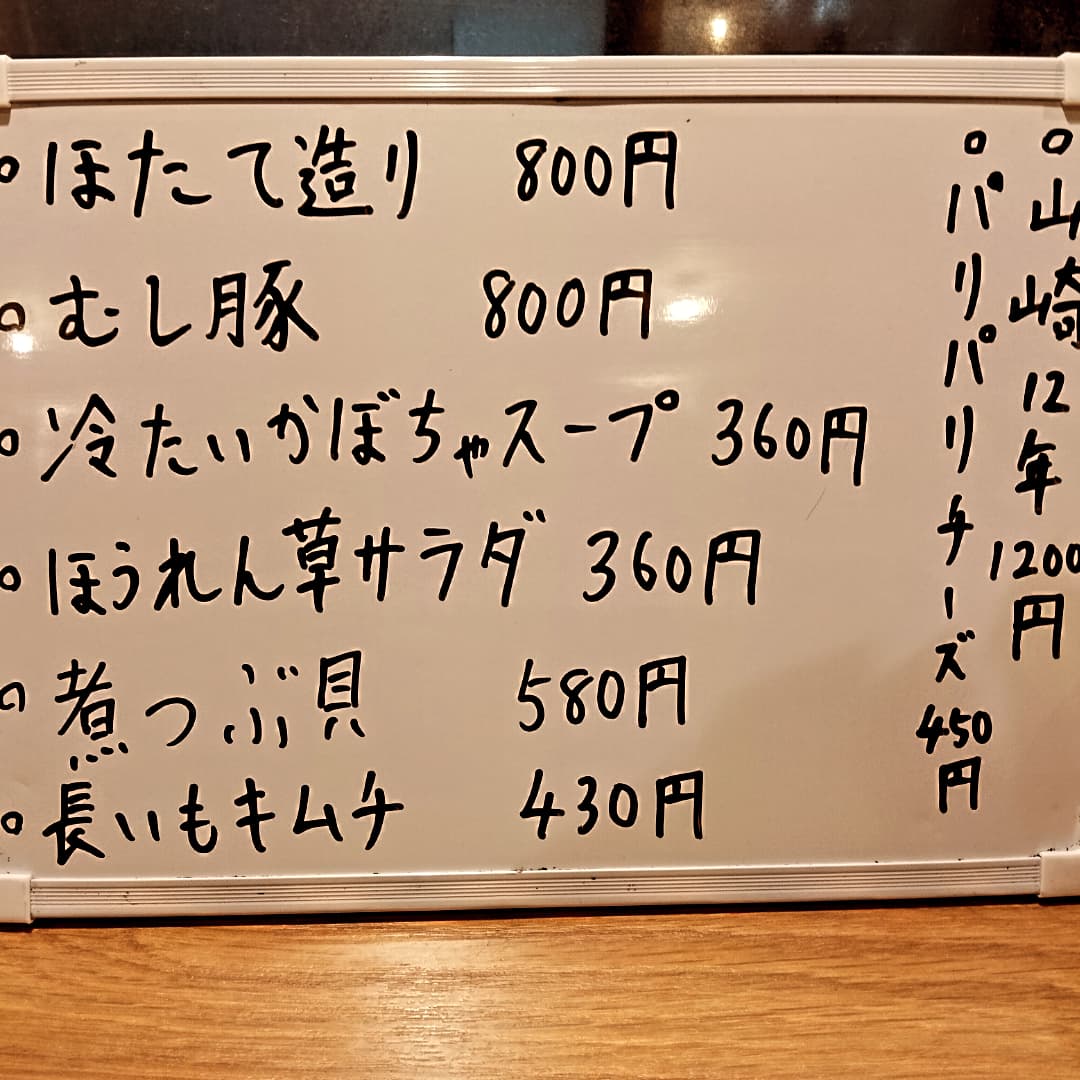 。ほたて造り 800円
。むし豚 800円
。冷たいかぼちゃスープ 360円
。ほうれん草サラダ 360円
。煮つぶ貝 580円
。長いもキムチ 430円
。山崎12年1200円
。パリパリチーズ450円